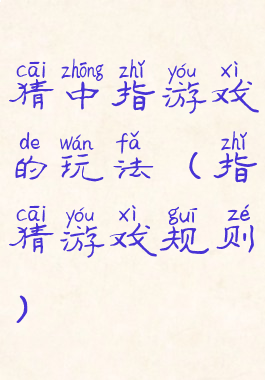 cāi zhōng zhǐ yóu xì
猜中指游戏
de wán fǎ zhǐ
的玩法(指
cāi yóu xì guī zé
猜游戏规则
)